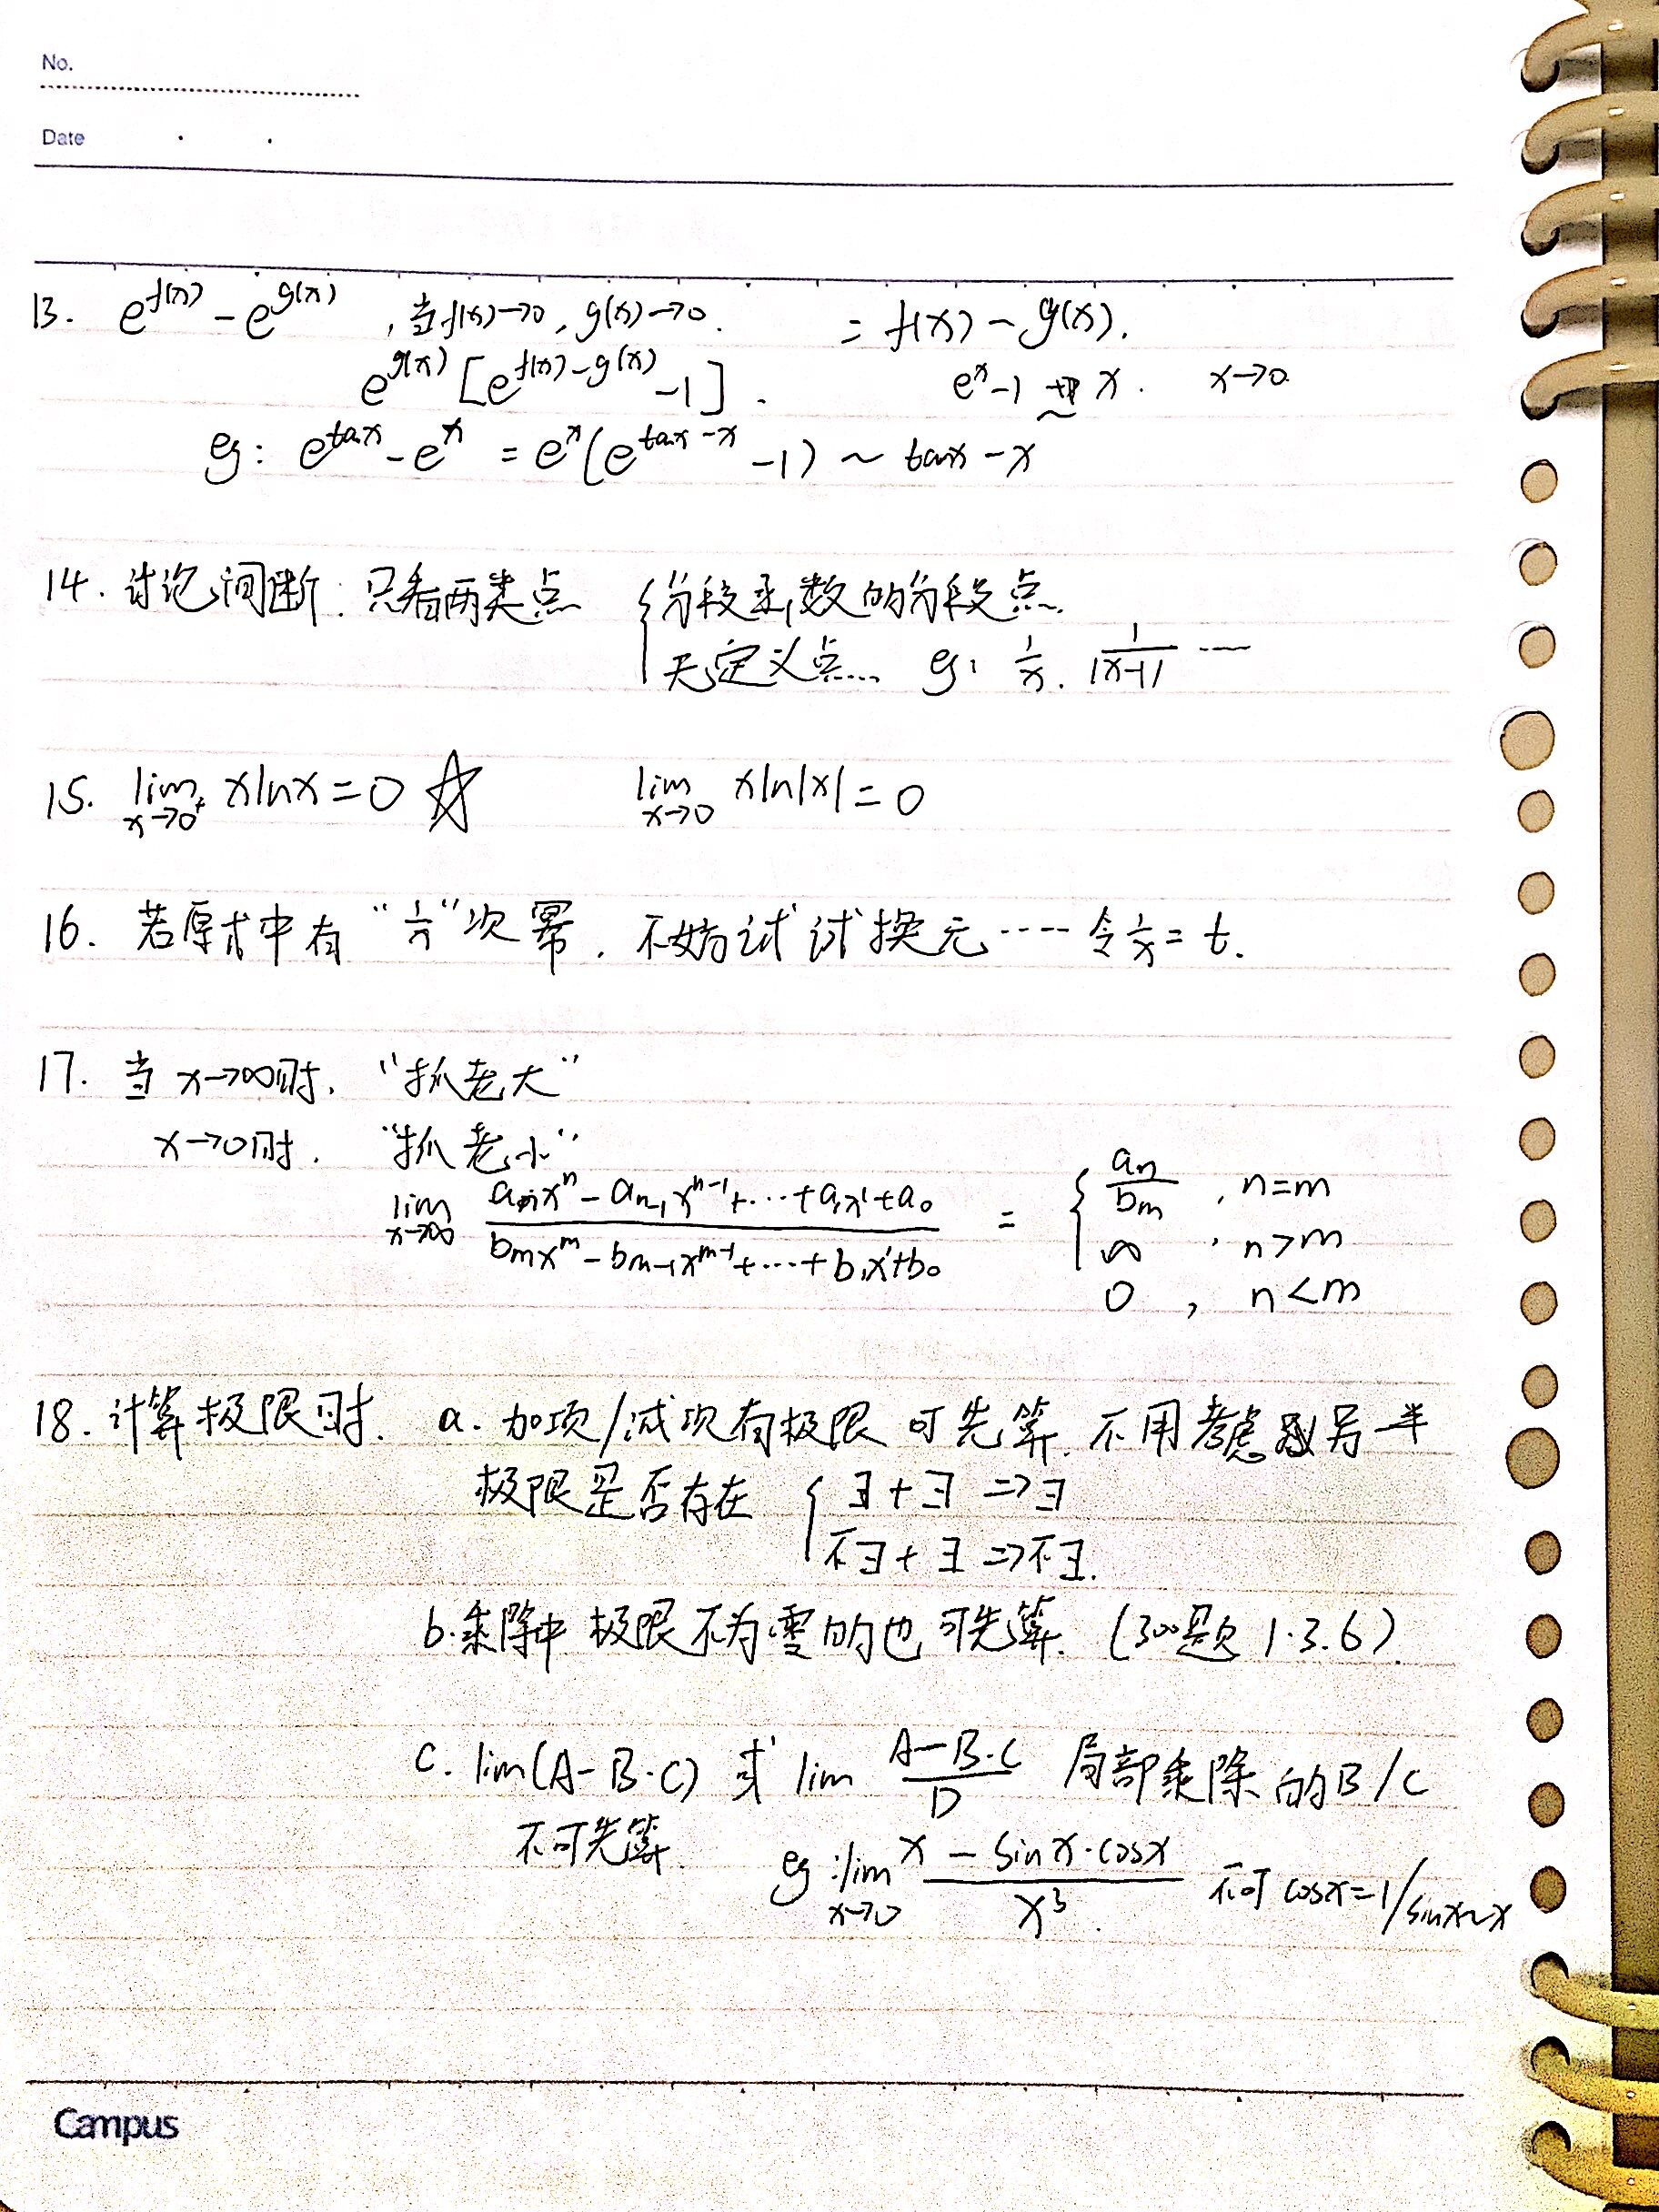 No.
Date
13. e^{f(x)} - e^{g(x)} , 当f(x)→0, g(x)→0. = f(x) - g(x).
e^{g(x)} [e^{f(x)-g(x)} -1]. e^x -1 ~ x. x→0.
eg: e^{tanx} - e^x = e^x(e^{tanx-x} -1) ~ tanx - x
14. 讨论间断: 只看两类点 { 分段函数的分段点.
无定义点... eg: 1/x. 1/|x-1| ....
15. lim_{x→0⁺} xlnx = 0 ☆ lim_{x→0} xln|x| = 0
16. 若原式中有 “1/x” 次幂. 不妨试试换元 .... 令 1/x = t.
17. 当 x→∞时. “抓老大”
x→0时. “抓老小”
lim_{x→∞} (a_n x^n - a_{n-1} x^{n-1} + ... + a_1 x^1 + a_0) / (b_m x^m - b_{m-1} x^{m-1} + ... + b_1 x^1 + b_0) = { a_n/b_m , n=m
∞ , n>m
0 , n<m
18. 计算极限时. a. 加项/减项有极限 可先算. 不用考虑另一半
极限是否存在 { ∃+∃ ⇒ ∃
不∃+∃ ⇒ 不∃.
b. 乘除中 极限不为零的也可先算. (300题 1.3.6).
c. lim(A-B·C) 或 lim (A-B·C)/D 局部乘除的B/C
不可先算. eg: lim_{x→0} (x - sinx·cosx)/x³ . 不可 cosx=1/sinx~x
Campus